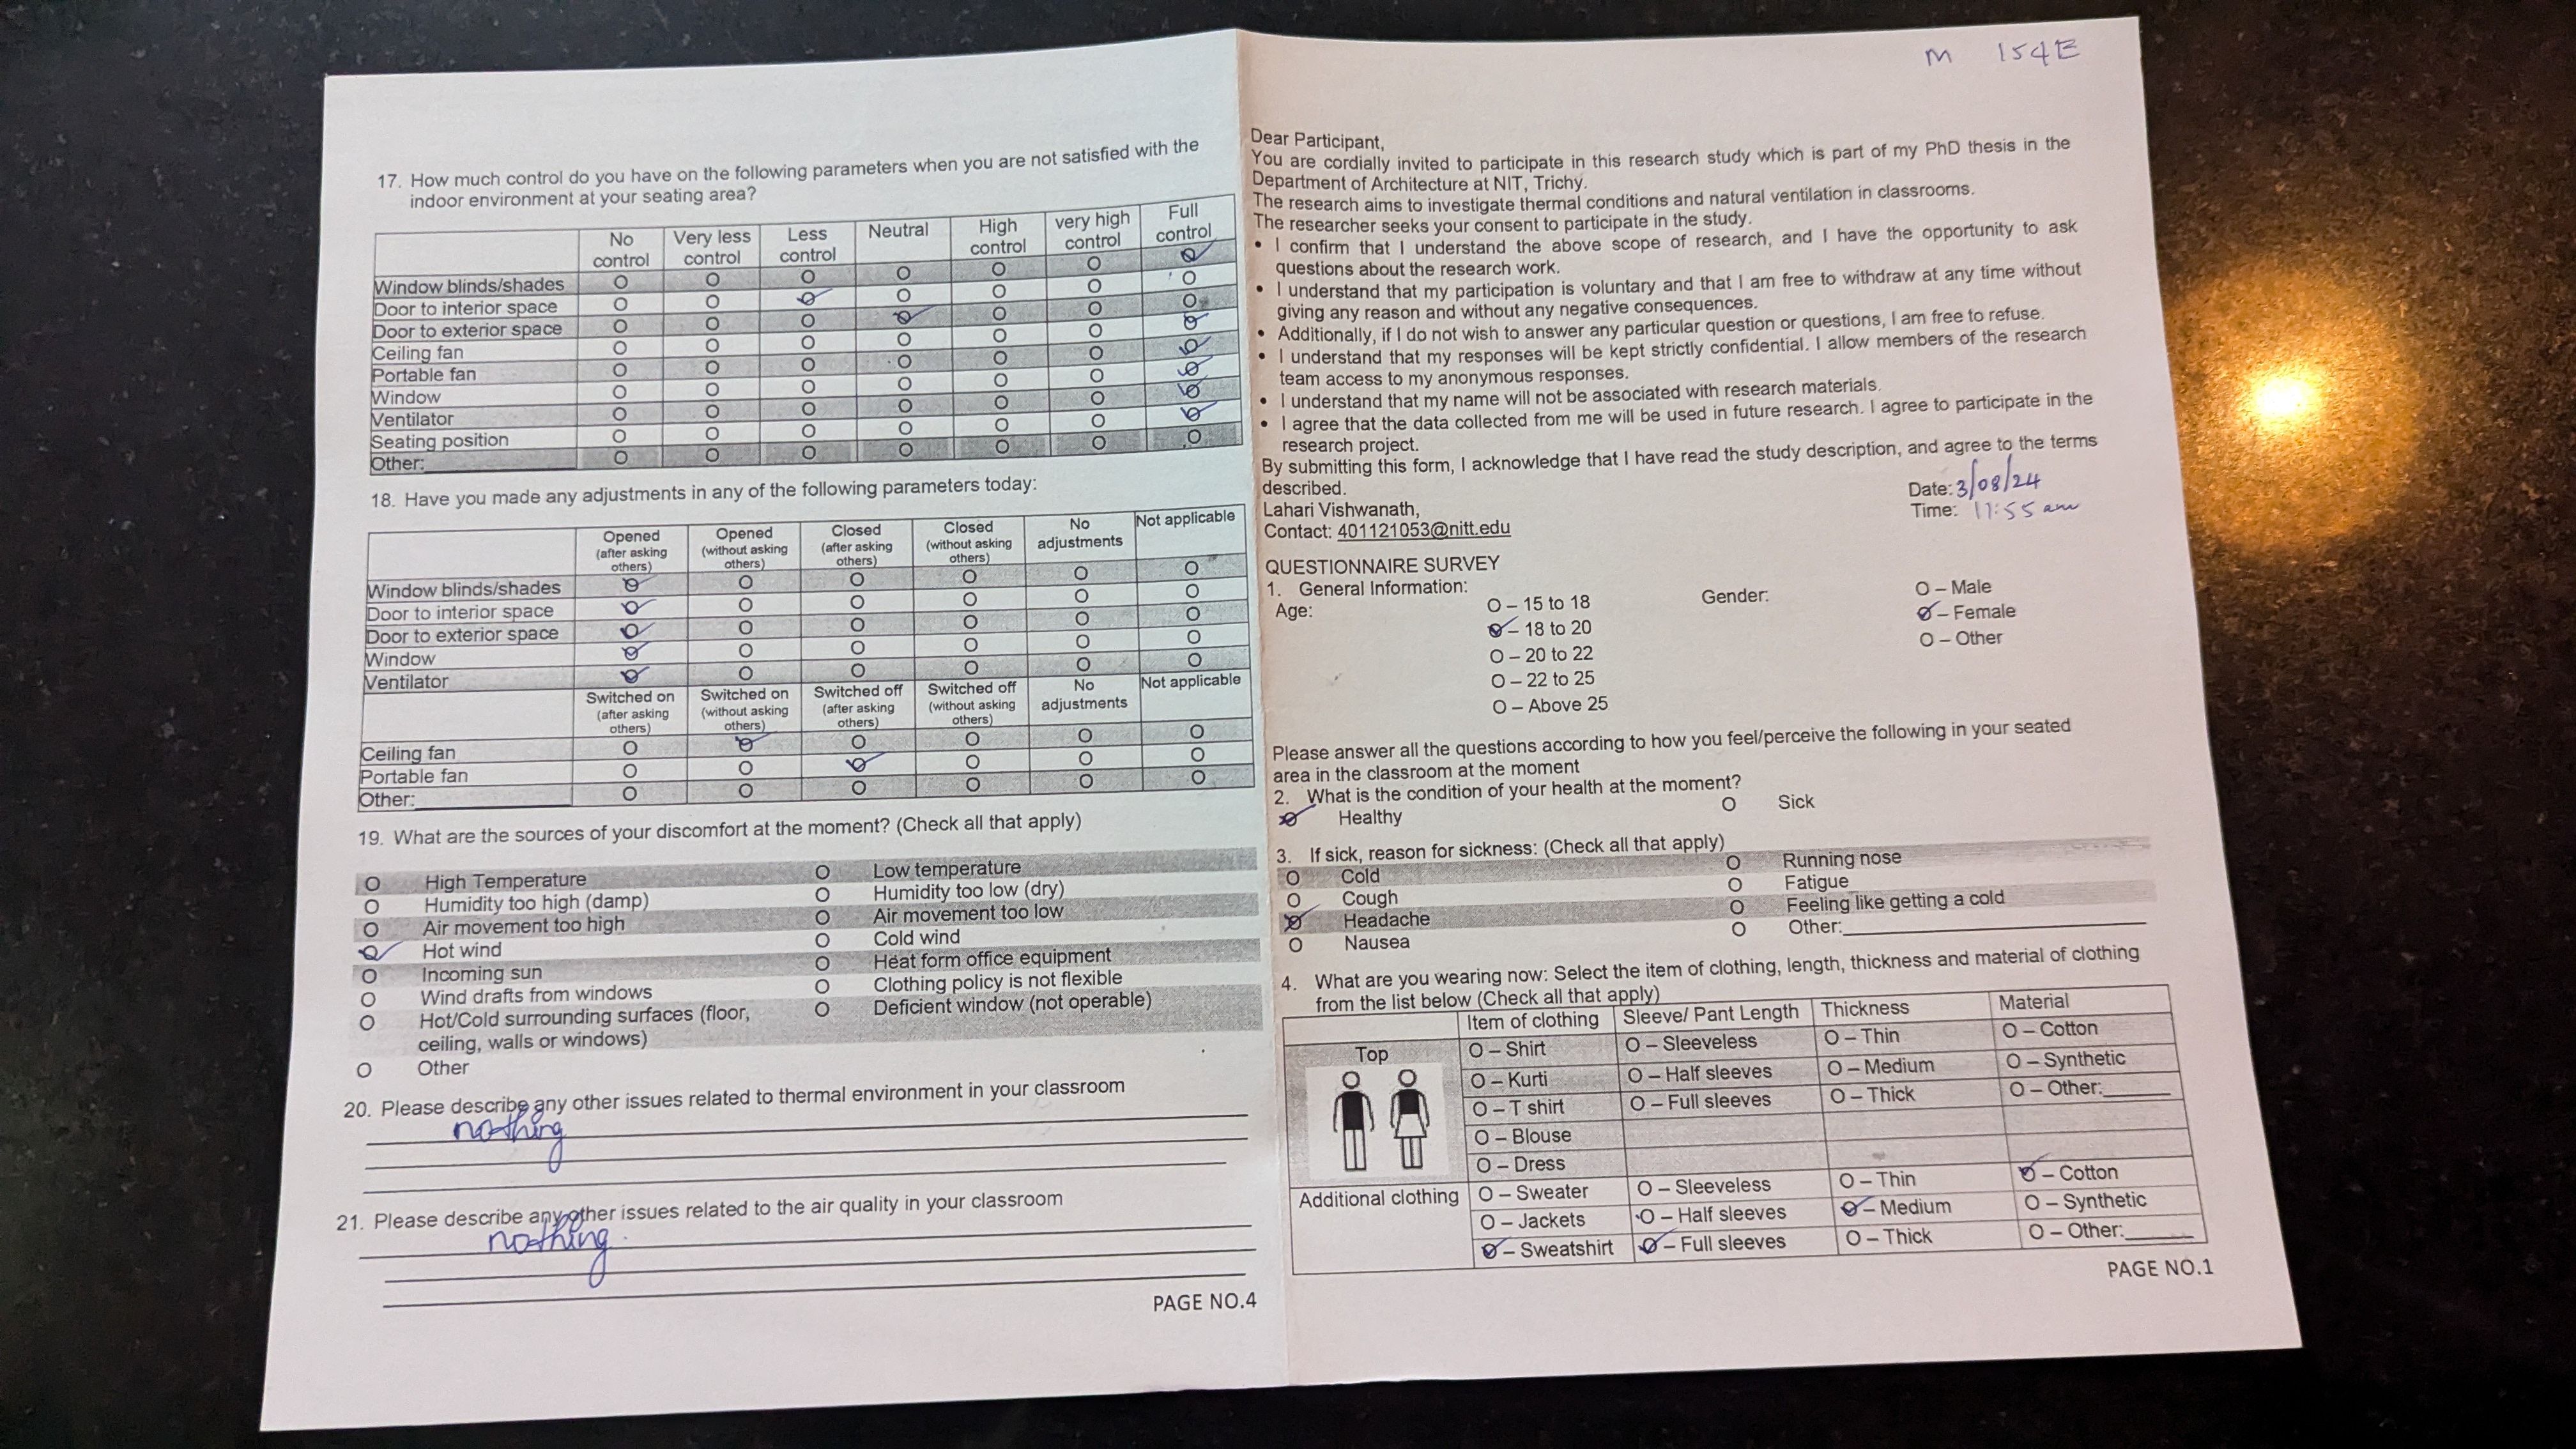 17. How much control do you have on the following parameters when you are not satisfied with the
indoor environment at your seating area?
No control Very less control Less control Neutral High control very high control Full control
Window blinds/shades O O O O O O O
Door to interior space O O O O O O O
Door to exterior space O O O O O O O
Ceiling fan O O O O O O O
Portable fan O O O O O O O
Window O O O O O O O
Ventilator O O O O O O O
Seating position O O O O O O O
Other: O O O O O O O
18. Have you made any adjustments in any of the following parameters today:
Opened (after asking others) Opened (without asking others) Closed (after asking others) Closed (without asking others) No adjustments Not applicable
Window blinds/shades O O O O O O
Door to interior space O O O O O O
Door to exterior space O O O O O O
Window O O O O O O
Ventilator O O O O O O
Switched on (after asking others) Switched on (without asking others) Switched off (after asking others) Switched off (without asking others) No adjustments Not applicable
Ceiling fan O O O O O O
Portable fan O O O O O O
Other: O O O O O O
19. What are the sources of your discomfort at the moment? (Check all that apply)
O High Temperature O Low temperature
O Humidity too high (damp) O Humidity too low (dry)
O Air movement too high O Air movement too low
O Hot wind O Cold wind
O Incoming sun O Heat form office equipment
O Wind drafts from windows O Clothing policy is not flexible
O Hot/Cold surrounding surfaces (floor, O Deficient window (not operable)
ceiling, walls or windows)
O Other
20. Please describe any other issues related to thermal environment in your classroom
nothing
21. Please describe any other issues related to the air quality in your classroom
nothing.
PAGE NO.4
M 154E
Dear Participant,
You are cordially invited to participate in this research study which is part of my PhD thesis in the
Department of Architecture at NIT, Trichy.
The research aims to investigate thermal conditions and natural ventilation in classrooms.
The researcher seeks your consent to participate in the study.
• I confirm that I understand the above scope of research, and I have the opportunity to ask
questions about the research work.
• I understand that my participation is voluntary and that I am free to withdraw at any time without
giving any reason and without any negative consequences.
• Additionally, if I do not wish to answer any particular question or questions, I am free to refuse.
• I understand that my responses will be kept strictly confidential. I allow members of the research
team access to my anonymous responses.
• I understand that my name will not be associated with research materials.
• I agree that the data collected from me will be used in future research. I agree to participate in the
research project.
By submitting this form, I acknowledge that I have read the study description, and agree to the terms
described.
Date: 3/08/24
Lahari Vishwanath,
Time: 11:55 am
Contact: 401121053@nitt.edu
QUESTIONNAIRE SURVEY
1. General Information:
Age: O – 15 to 18 Gender: O – Male
O – 18 to 20 O – Female
O – 20 to 22 O – Other
O – 22 to 25
O – Above 25
Please answer all the questions according to how you feel/perceive the following in your seated
area in the classroom at the moment
2. What is the condition of your health at the moment?
O Healthy O Sick
3. If sick, reason for sickness: (Check all that apply)
O Cold O Running nose
O Cough O Fatigue
O Headache O Feeling like getting a cold
O Nausea O Other:
4. What are you wearing now: Select the item of clothing, length, thickness and material of clothing
from the list below (Check all that apply)
Item of clothing Sleeve/ Pant Length Thickness Material
Top O – Shirt O – Sleeveless O – Thin O – Cotton
O – Kurti O – Half sleeves O – Medium O – Synthetic
O – T shirt O – Full sleeves O – Thick O – Other:
O – Blouse
O – Dress
Additional clothing O – Sweater O – Sleeveless O – Thin O – Cotton
O – Jackets O – Half sleeves O – Medium O – Synthetic
O – Sweatshirt O – Full sleeves O – Thick O – Other:
PAGE NO.1